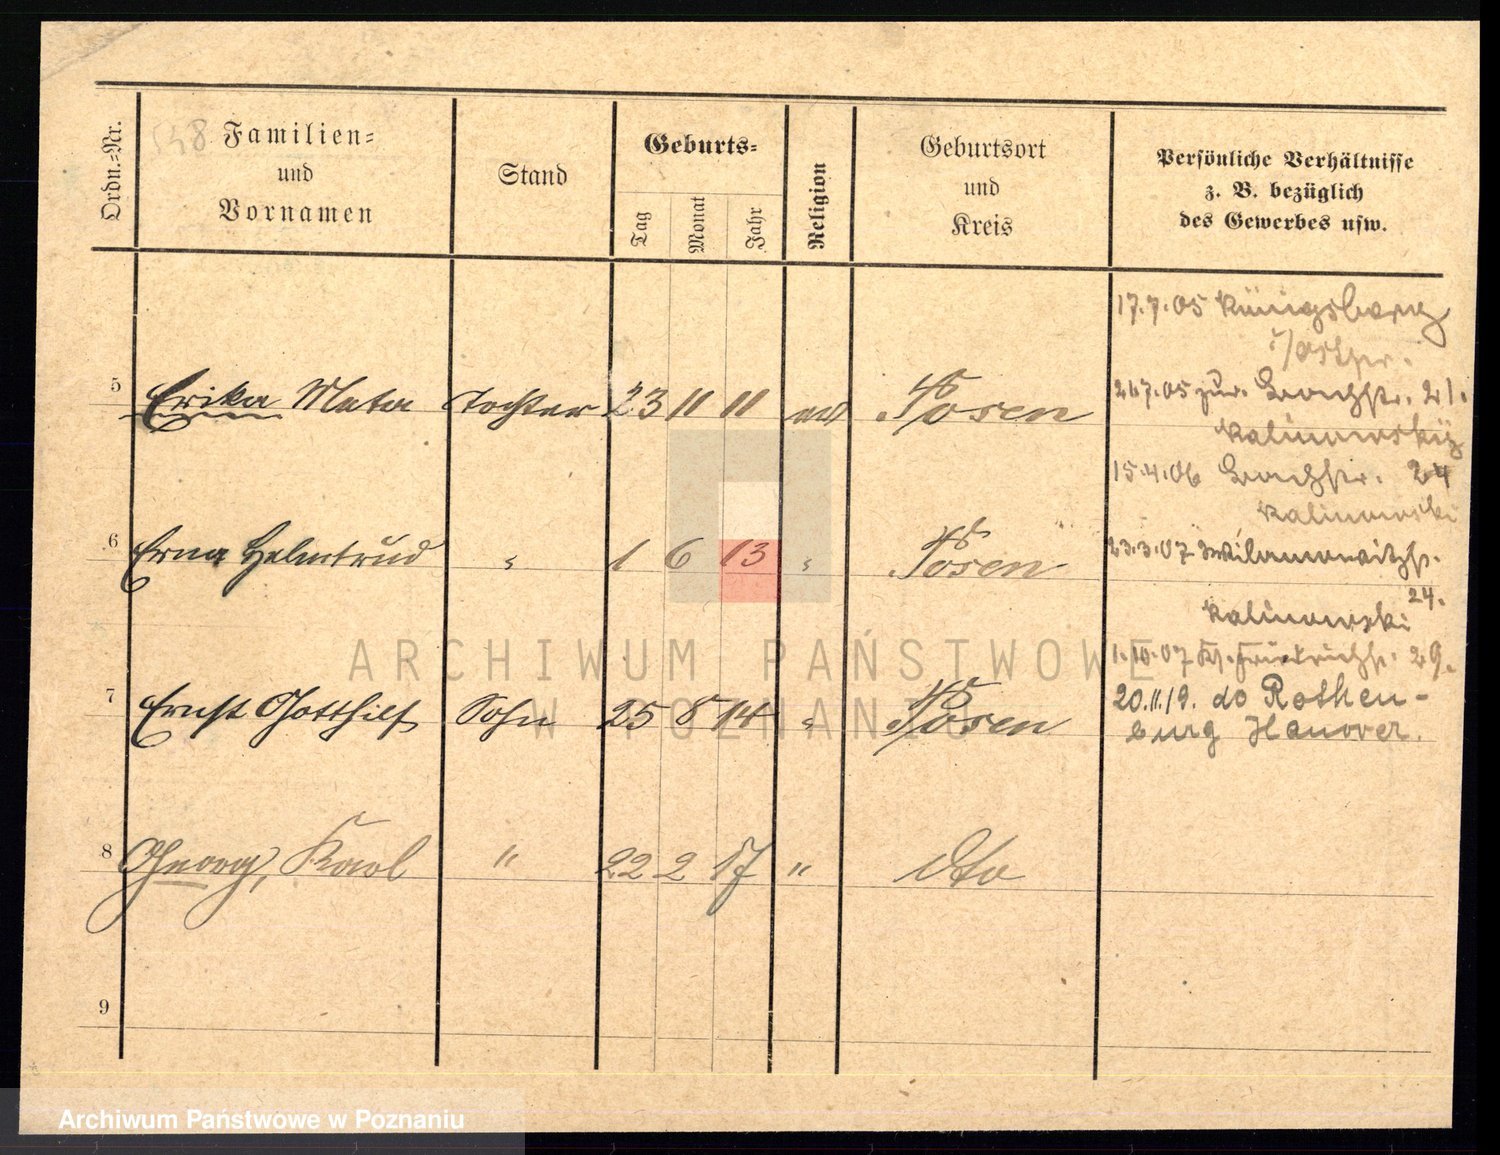 Ordn.-Nr.
548
Familien-
und
Vornamen
Stand
Geburts-
Tag
Monat
Jahr
Religion
Geburtsort
und
Kreis
Persönliche Verhältnisse
z. B. bezüglich
des Gewerbes usw.
5 Erika Meta Tochter 23 11 11 ev Posen
6 Erna Helmtrud " 1 6 13 " Posen
7 Ernst Gotthilf Sohn 25 8 14 " Posen
8 Georg, Karl " 22 2 17 " dto
9
17.7.05 Königsberg
i/Ostpr.
24.7.05 zur. 21.
Kalinowsky
15.4.06 24
Kalinowski
23.3.07 Wilamowitzstr.
24.
Kalinowski
1.10.07 Kl. Friedrichstr. 29.
20.11.19. do Rothen-
burg Hanover.
ARCHIWUM PAŃSTWOWE
W POZNANIU
Archiwum Państwowe w Poznaniu